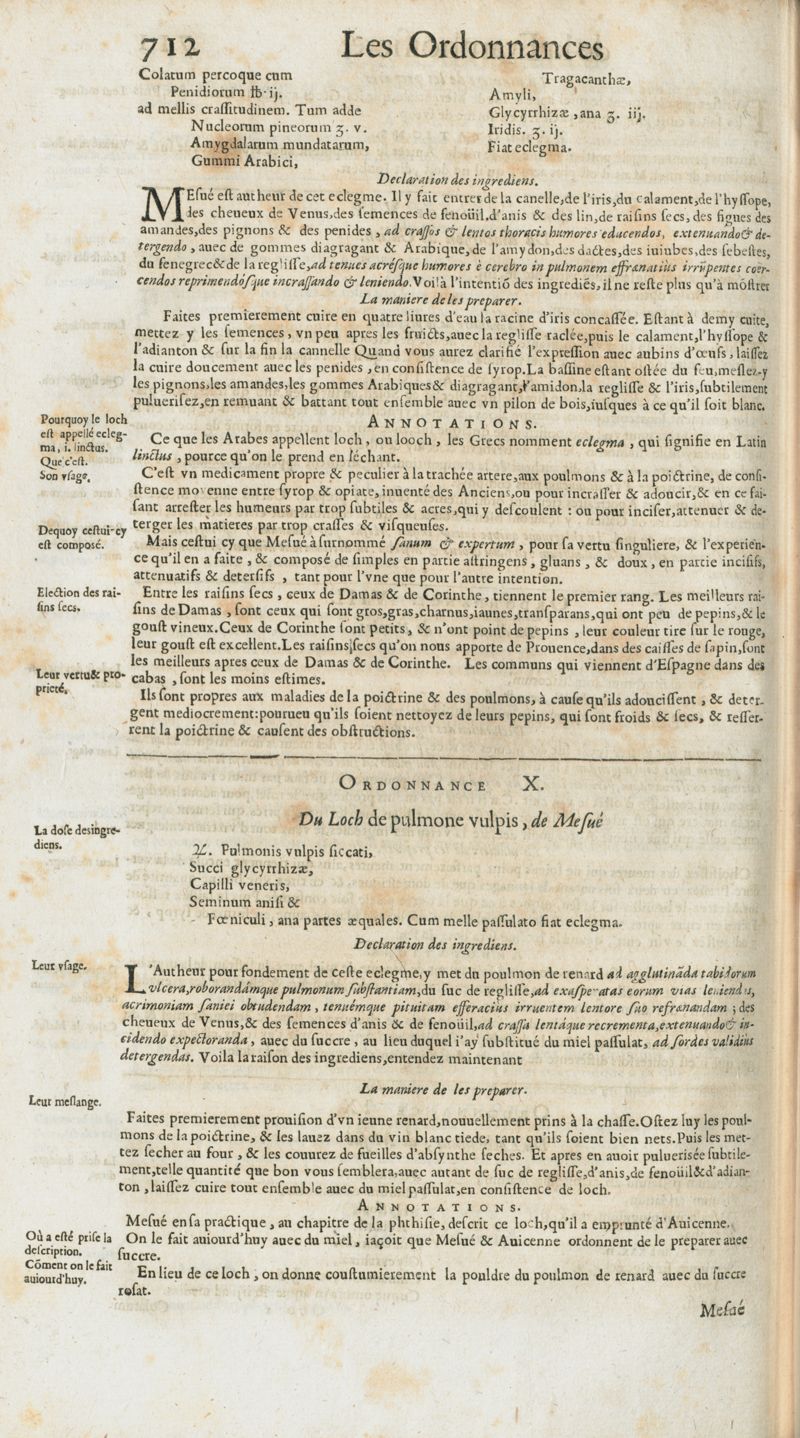 712 Les Ordonnances
Colatum percoque cum
Penidiorum ℔. ij.
ad mellis craſſitudinem. Tum adde
Nucleorum pineorum ʒ. v.
Amygdalarum mundatarum,
Gummi Arabici,
Tragacanthæ,
Amyli,
Glycyrrhizæ, ana ʒ. iij.
Iridis. ʒ. ij.
Fiat eclegma.
Declaration des ingrediens.
MEſué eſt autheur de cet eclegme. Il y fait entrer de la canelle, de l'iris, du calament, de l'hyſſope,
des cheueux de Venus, des ſemences de fenoüil, d'anis & des lin, de raiſins ſecs, des figues des
amandes, des pignons & des penides, ad craſſos & lentos thoracis humores educendos, extenuando & de-
tergendo, auec de gommes diagragant & Arabique, de l'amydon, des dactes, des iuiubes, des ſebeſtes,
du fenegrec & de la regliſſe, ad tenues acréſque humores è cerebro in pulmonem effranatius irrũpentes coër-
cendos reprimendóſque incraſſando & leniendo. Voilà l'intentiõ des ingrediẽs, il ne reſte plus qu'à mõſtrer
La maniere de les preparer.
Faites premierement cuire en quatre liures d'eau la racine d'iris concaſſée. Eſtant à demy cuite,
mettez y les ſemences, vn peu apres les fruicts, auec la regliſſe raclée, puis le calament, l'hyſſope &
l'adianton & ſur la fin la cannelle Quand vous aurez clarifié l'expreſſion auec aubins d'œufs, laiſſez
la cuire doucement auec les penides, en conſiſtence de ſyrop. La baſſine eſtant oſtée du feu, meſlez-y
les pignons, les amandes, les gommes Arabiques & diagragant, l'amidon, la regliſſe & l'iris, ſubtilement
puluerisez, en remuant & battant tout enſemble auec vn pilon de bois, iuſques à ce qu'il ſoit blanc.
ANNOTATIONS.
Pourquoy le loch
eſt appellé ecleg-
ma, i. linctus.
Que c'eſt.
Son vſage.
Ce que les Arabes appellent loch, ou looch, les Grecs nomment eclegma, qui ſignifie en Latin
linctus, pource qu'on le prend en léchant.
C'eſt vn medicament propre & peculier à la trachée artere, aux poulmons & à la poictrine, de conſi-
ſtence moyenne entre ſyrop & opiate, inuenté des Anciens, ou pour incraſſer & adoucir, & en ce fai-
ſant arreſter les humeurs par trop ſubtiles & acres, qui y deſcoulent : ou pour inciſer, attenuer & de-
terger les matieres par trop craſſes & viſqueuſes.
Dequoy ceſtui-cy
eſt composé.
Mais ceſtui cy que Meſué à ſurnommé ſanum & expertum, pour ſa vertu ſinguliere, & l'experien-
ce qu'il en a faite, & composé de ſimples en partie aſtringens, gluans, & doux, en partie inciſifs,
attenuatifs & deterſifs, tant pour l'vne que pour l'autre intention.
Election des rai-
ſins ſecs.
Entre les raiſins ſecs, ceux de Damas & de Corinthe, tiennent le premier rang. Les meilleurs rai-
ſins de Damas, ſont ceux qui ſont gros, gras, charnus, iaunes, tranſparans, qui ont peu de pepins, & le
gouſt vineux. Ceux de Corinthe ſont petits, & n'ont point de pepins, leur couleur tire ſur le rouge,
leur gouſt eſt excellent. Les raiſins ſecs qu'on nous apporte de Prouence, dans des caiſſes de ſapin, ſont
les meilleurs apres ceux de Damas & de Corinthe. Les communs qui viennent d'Eſpagne dans des
cabas, ſont les moins eſtimes.
Leur vertu & pro-
prieté.
Ils ſont propres aux maladies de la poictrine & des poulmons, à cauſe qu'ils adouciſſent, & deter-
gent mediocrement: pourueu qu'ils ſoient nettoyez de leurs pepins, qui ſont froids & ſecs, & reſſer-
rent la poictrine & cauſent des obſtructions.
ORDONNANCE X.
Du Loch de pulmone vulpis, de Meſué
La doſe des ingre-
diens.
♃. Pulmonis vulpis ſiccati,
Succi glycyrrhizæ,
Capilli veneris,
Seminum aniſi &
Fœniculi, ana partes æquales. Cum melle paſſulato fiat eclegma.
Declaration des ingrediens.
Leur vſage.
L'Autheur pour fondement de ceſte eclegme, y met du poulmon de renard ad agglutinãda tabidorum
vlcera, roborandámque pulmonum ſubſtantiam, du ſuc de regliſſe, ad exaſperatas eorum vias leniendas,
acrimoniam ſaniei obtudendam, tenuémque pituitam efferacius irruentem lentore ſuo refranandam ; des
cheueux de Venus, & des ſemences d'anis & de fenoüil, ad craſſa lentáque recrementa, extenuando & in-
cidendo expectoranda, auec du ſuccre, au lieu duquel i'ay ſubſtitué du miel paſſulat, ad ſordes validius
detergendas. Voila la raiſon des ingrediens, entendez maintenant
La maniere de les preparer.
Leur meſlange.
Faites premierement prouiſion d'vn ieune renard, nouuellement prins à la chaſſe. Oſtez luy les poul-
mons de la poictrine, & les lauez dans du vin blanc tiede, tant qu'ils ſoient bien nets. Puis les met-
tez ſecher au four, & les couurez de fueilles d'abſynthe ſeches. Et apres en auoir pulueriſée ſubtile-
ment, telle quantité que bon vous ſemblera, auec autant de ſuc de regliſſe, d'anis, de fenoüil & d'adian-
ton, laiſſez cuire tout enſemble auec du miel paſſulat, en conſiſtence de loch.
ANNOTATIONS.
Meſué en ſa practique, au chapitre de la phthiſie, deſcrit ce loch, qu'il a emprunté d'Auicenne.
Où a eſté priſe la
deſcription.
On le fait auiourd'huy auec du miel, iaçoit que Meſué & Auicenne ordonnent de le preparer auec
ſuccre.
Cõment on le fait
auiourd'huy.
En lieu de ce loch, on donne couſtumierement la pouldre du poulmon de renard auec du ſuccre
roſat.
Meſué